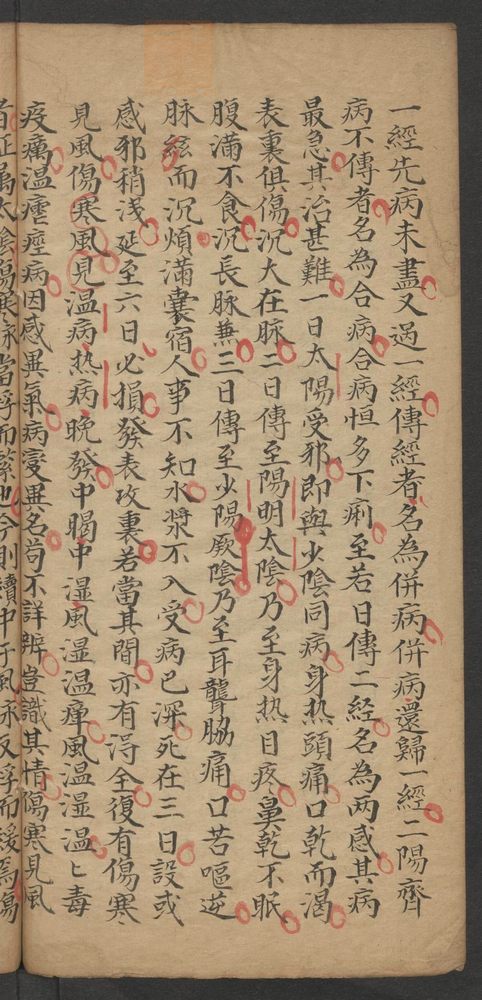 一經先病未盡又過一經傳經者名為併病併病還歸一經二陽齊
病不傳者名為合病合病恒多下痢至若日傳二経名為两感其病
最急其治甚難一日太陽受邪即與少陰同病身热頭痛口乾而渴
表裏俱傷沉大在脉二日傳至陽明太陰乃至身热日疼鼻乾不眠
腹满不食沉長脉無三日傳至少陽厥陰乃至耳聾脇痛口苦嘔逆
脉絃而沉煩滿囊宿人事不知水漿不入受病已深死在三日設或
感邪稍浅延至六日必損發表攻裏若當其間亦有淂全復有傷寒
見風傷寒風見温病热病晚發中暍中湿風湿温痺風温湿温匕毒
疫癘温瘧痙病因感異氣病变異名苟不詳辨豈識其情傷寒見風
者証属太陰傷寒脉當浮而緊也今則續中于風脉反浮而緩焉傷